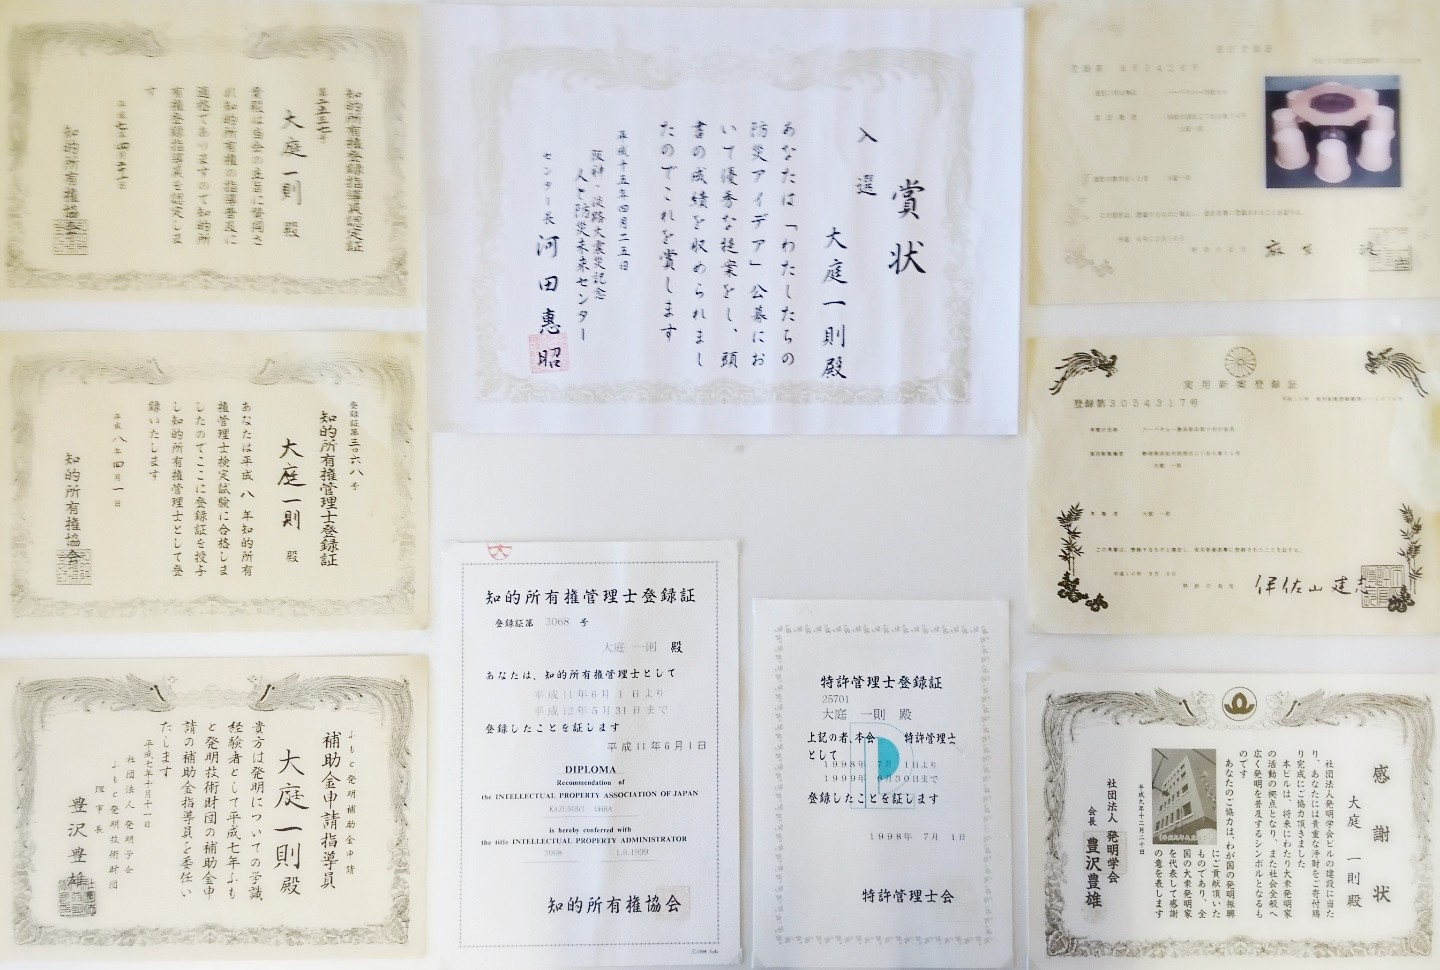 知的所有権登録指導員認定証
第二三七号
大庭一則 殿
貴殿は当会の主旨に賛同さ
れ知的所有権の指導普及に
適格でありますので知的所
有権登録指導員を認定しま
す
知的所有権協会
賞状
入選
大庭一則殿
あなたは「わたしたちの
防災アイデア」公募にお
いて優秀な提案をし、頭
書の成績を収められまし
たのでこれを賞します
平成十五年四月二五日
阪神・淡路大震災記念
人と防災未来センター
センター長 河田惠昭
登録証第三〇六八号
知的所有権管理士登録証
大庭一則 殿
あなたは平成八年知的所有
権管理士検定試験に合格しま
したのでここに登録証を授与
し知的所有権管理士として登
録いたします
平成八年四月一日
知的所有権協会
実用新案登録証
登録第3054317号
大庭 一則
この考案は、登録するものと確定し、実用新案原簿に登録されたことを証する。
特許庁長官 伊佐山建志
ふもと発明補助金申請
補助金申請指導員
大庭一則殿
貴方は発明についての学識
経験者として平成七年ふも
と発明技術財団の補助金申
請の補助金指導員を委任い
たします
平成七年十月十一日
社団法人 発明学会
ふもと発明技術財団
理事長 豊沢豊雄
知的所有権管理士登録証
登録証第 3068 号
大庭 一則 殿
あなたは、知的所有権管理士として
平成11年6月1日より
平成12年5月31日まで
登録したことを証します
平成11年6月1日
DIPLOMA
Recommendation of
the INTELLECTUAL PROPERTY ASSOCIATION OF JAPAN
KAZUNORI OHBA
is hereby conferred with
the title INTELLECTUAL PROPERTY ADMINISTRATOR
3068 1.6.1999
知的所有権協会
特許管理士登録証
25701
大庭 一則 殿
上記の者、本会 特許管理士
として
1998年 7月1日より
1999年 6月30日まで
登録したことを証します
1998年 7月 1日
特許管理士会
感謝状
大庭 一則殿
社団法人発明学会ビルの建設に当た
り、あなたには貴重な浄財をご寄付賜
り完成にご協力頂きました
本ビルは、将来にわたり大衆発明家
の活動の拠点となり、また社会全般へ
広く発明を普及するシンボルとなるも
のです
あなたのご協力は、わが国の発明振興
にご貢献頂いた
ものであり、全
国の大衆発明家
を代表して感謝
の意を表します
平成九年十二月二十日
社団法人 発明学会
会長 豊沢豊雄